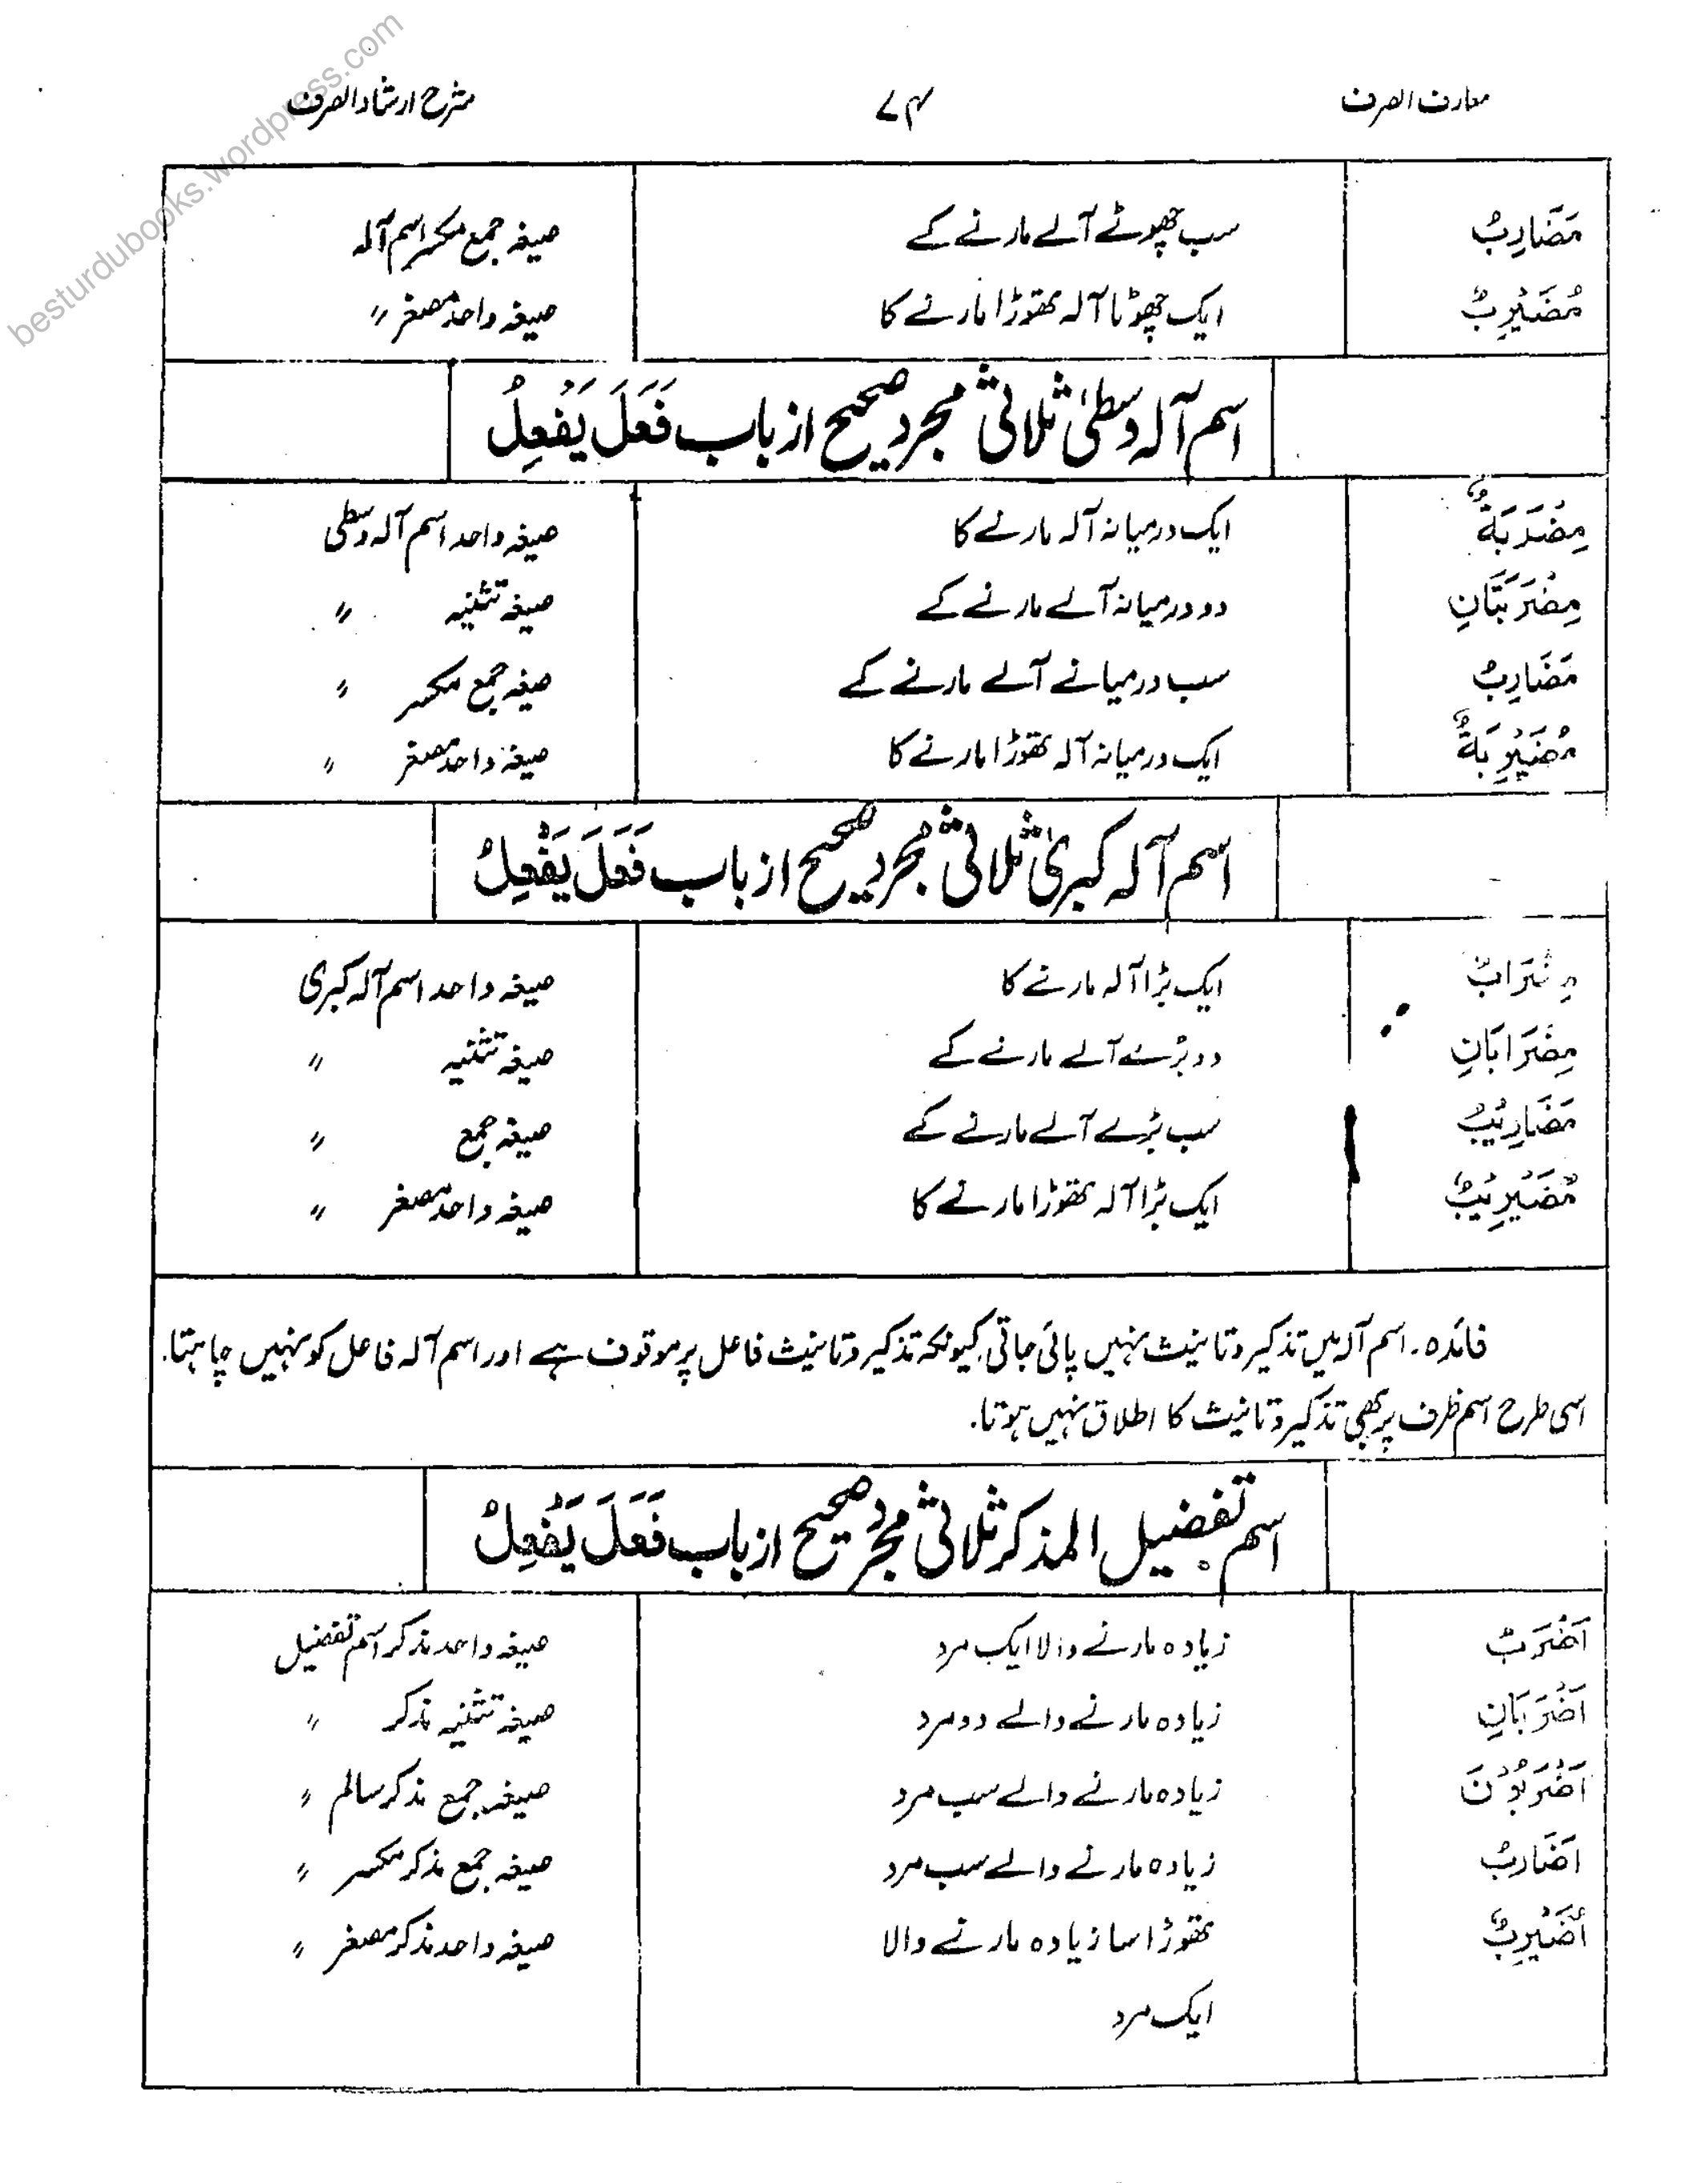 معارف الصرف ۷۴ شرح ارشاد الصرف
besturdubooks.wordpress.com
مَضَارِبُ سب چھوٹے آلے مارنے کے صیغہ جمع مکسر اسم آلہ
مُضَيْرِبٌ ایک چھوٹا آلہ تھوڑا مارنے کا صیغہ واحد مصغر 〃
اسم آلہ وسطیٰ ثلاثی مجرد صحیح از باب فَعَلَ يَفْعِلُ
مِضْرَبَةٌ ایک درمیانہ آلہ مارنے کا صیغہ واحد اسم آلہ وسطی
مِضْرَبَتَانِ دو درمیانہ آلے مارنے کے صیغہ تثنیہ 〃
مَضَارِبُ سب درمیانے آلے مارنے کے صیغہ جمع مکسر 〃
مُضَيْرِبَةٌ ایک درمیانہ آلہ تھوڑا مارنے کا صیغہ واحد مصغر 〃
اسم آلہ کبریٰ ثلاثی مجرد صحیح از باب فَعَلَ يَفْعِلُ
مِضْرَابٌ ایک بڑا آلہ مارنے کا صیغہ واحد اسم آلہ کبری
مِضْرَابَانِ دو بڑے آلے مارنے کے صیغہ تثنیہ 〃
مَضَارِيْبُ سب بڑے آلے مارنے کے صیغہ جمع 〃
مُضَيْرِيْبٌ ایک بڑا آلہ تھوڑا مارنے کا صیغہ واحد مصغر 〃
فائدہ۔ اسم آلہ میں تذکیر و تانیث نہیں پائی جاتی کیونکہ تذکیر و تانیث فاعل پر موقوف ہے اور اسم آلہ فاعل کو نہیں چاہتا۔
اسی طرح اسم ظرف پر بھی تذکیر و تانیث کا اطلاق نہیں ہوتا۔
اسم تفضیل المذکر ثلاثی مجرد صحیح از باب فَعَلَ يَفْعِلُ
اَضْرَبُ زیادہ مارنے والا ایک مرد صیغہ واحد مذکر اسم تفضیل
اَضْرَبَانِ زیادہ مارنے والے دو مرد صیغہ تثنیہ مذکر 〃
اَضْرَبُوْنَ زیادہ مارنے والے سب مرد صیغہ جمع مذکر سالم 〃
اَضَارِبُ زیادہ مارنے والے سب مرد صیغہ جمع مذکر مکسر 〃
اُضَيْرِبٌ تھوڑا سا زیادہ مارنے والا صیغہ واحد مذکر مصغر 〃
ایک مرد